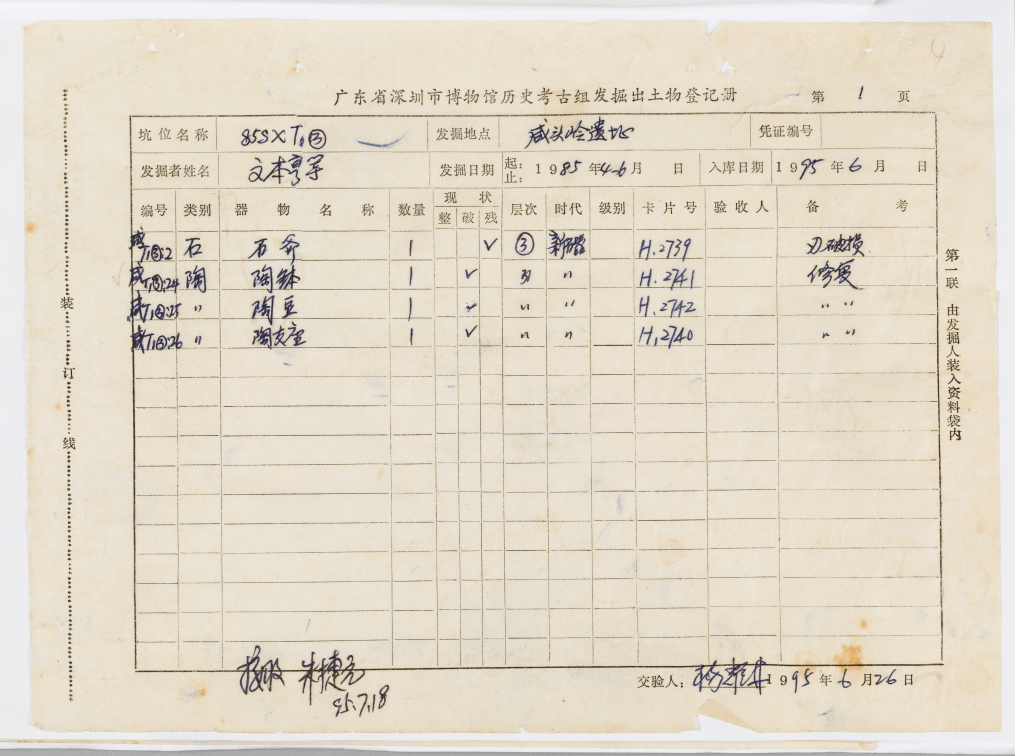 4
广东省深圳市博物馆历史考古组发掘出土物登记册 第 1 页
坑位名称 85SXT1③ 发掘地点 咸头岭遗址 凭证编号
发掘者姓名 文本亨等 发掘日期 起: 止: 1985年4-6月 日 入库日期 1995年6月 日
编号 类别 器物名称 数量 现状 整 破 残 层次 时代 级别 卡片号 验收人 备考
咸T1③:2 石 石斧 1 ✓ ③ 新石器 H.2739 刃破损
咸T1③:24 陶 陶钵 1 ✓ 〃 〃 H.2741 修复
咸T1③:25 〃 陶豆 1 ✓ 〃 〃 H.2742 〃 〃
咸T1③:26 〃 陶支座 1 ✓ 〃 〃 H.2740 〃 〃
装订线
第一联 由发掘人装入资料袋内
接收 朱捷元
95.7.18
交验人: 杨耀林 1995年6月26日